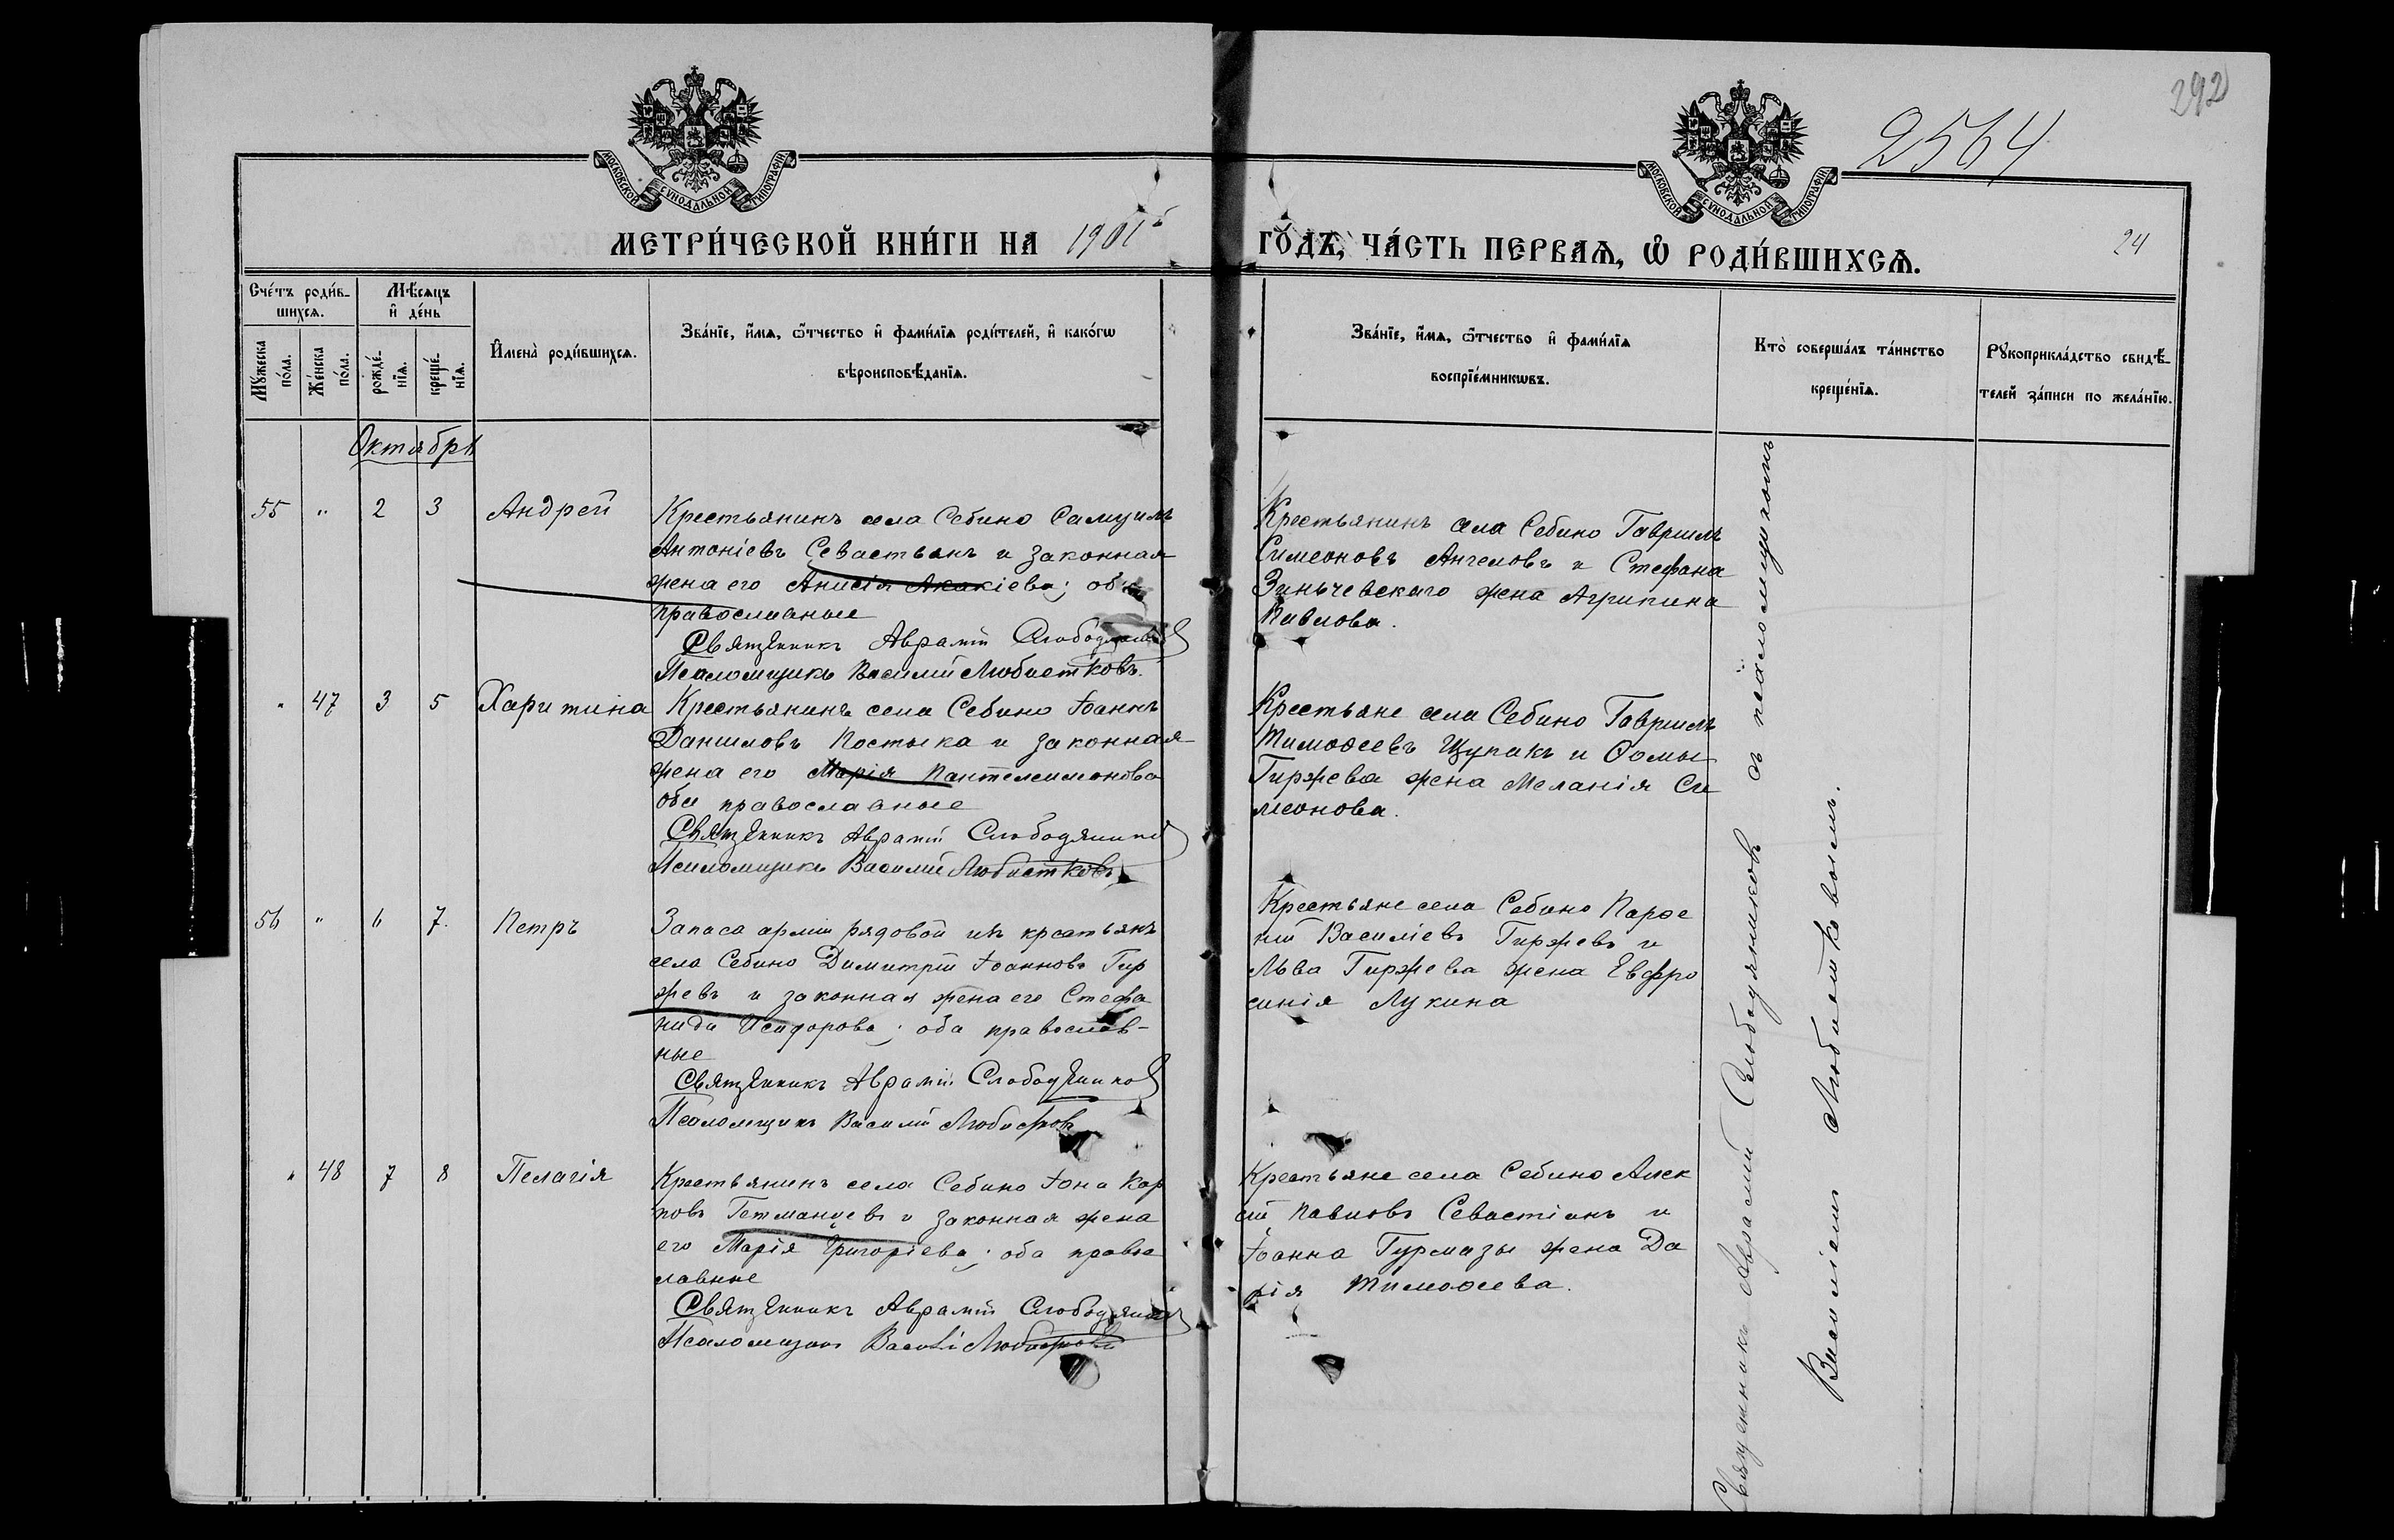 292
2564
МОСКОВСКОЙ СУНОДАЛЬНОЙ ТИПОГРАФІИ
МОСКОВСКОЙ СУНОДАЛЬНОЙ ТИПОГРАФІИ
МЕТРИ́ЧЕСКОЙ КНИ́ГИ НА 1901
ГО́ДЪ, ЧА́СТЬ ПЕРВАѦ, Ѽ РОДИ́ВШИХСѦ.
24
Сче́тъ роди́в-
шихсѧ.
Мѣ́сѧцъ
и҆ де́нь
Мꙋ́жеска
по́ла.
Же́нска
по́ла.
рожде́-
нїѧ.
креще́-
нїѧ.
И҆мена̀ роди́вшихсѧ.
Зва́нїе, и҆́мѧ, ѻ҆́тчество и҆ фами́лїѧ роди́телей, и҆ како́гѡ
вѣроисповѣ́данїѧ.
Зва́нїе, и҆́мѧ, ѻ҆́тчество и҆ фами́лїѧ
воспрїе́мникѡвъ.
Кто̀ соверша́лъ та́инство
креще́нїѧ.
Рꙋкоприкла́дство свидѣ́-
телей за́писи по жела́нїю.
Октябрь
55 " 2 3 Андрей
Крестьянинъ села Себино Самуилъ
Антоніевъ Севастьянъ и законная
жена его Анисія Акакіева; оба
православные
Священникъ Аврамій Слободяников
Псаломщикъ Василій Любистковъ.
Крестьянинъ села Себино Гавриилъ
Симеоновъ Ангеловъ и Стефана
Зиньчевскаго жена Агрипина
Павлова.
" 47 3 5 Харитина
Крестьянинъ села Себино Іоаннъ
Даниловъ Постыка и законная
жена его Марія Пантелеимонова
оба православные
Священникъ Аврамій Слободяников
Псаломщикъ Василій Любистковъ
Крестьяне села Себино Гавриилъ
Тимоѳеевъ Щупакъ и Ѳомы
Гиржева жена Меланія Си
меонова.
56 " 6 7. Петръ
Запаса арміи рядовой изъ крестьянъ
села Себино Димитрій Іоанновъ Гир
жевъ и законная жена его Стефа
нида Исидорова; оба православ-
ные
Священникъ Аврамій Слободяников
Псаломщикъ Василій Любистков
Крестьяне села Себино Парѳе
ній Василіевъ Гиржевъ и
Льва Гиржева жена Евфро
синія Лукина
" 48 7 8 Пелагія
Крестьянинъ села Себино Іона Кар
повъ Гетманцевъ и законная жена
его Марія Григоріева; оба право
славные
Священникъ Аврамій Слободяников
Псаломщикъ Василій Любистков
Крестьяне села Себино Алек
сій Павловъ Севастіянъ и
Іоанна Гурмазы жена Да
рія Тимоѳеева.
Священникъ Аврамій Слободяниковъ съ псаломщикомъ
Василіемъ Любистковымъ.